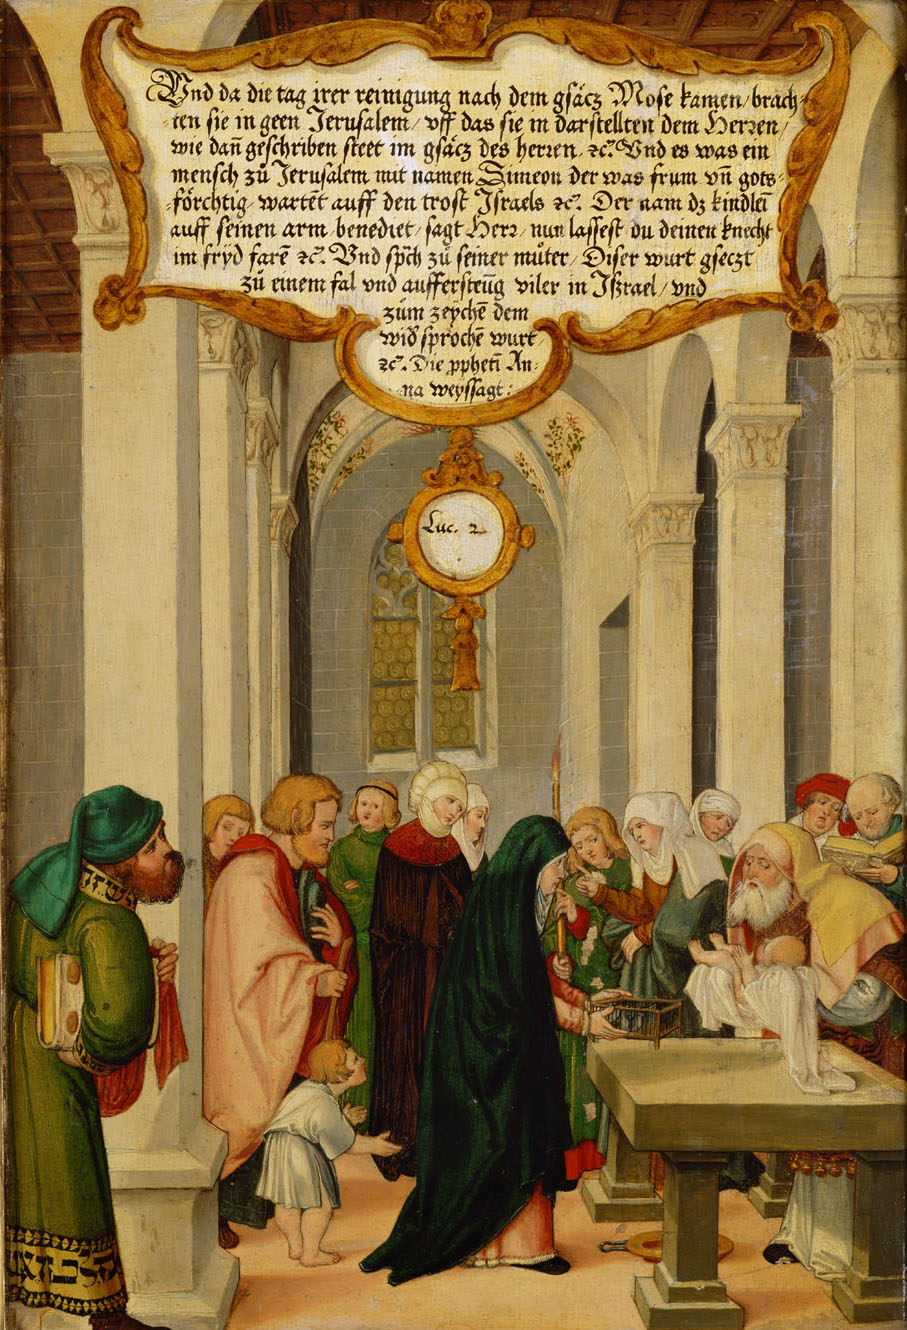 Vnd da die tag irer reinigung nach dem gsåcz Mose kamen/ brach-
ten sie in geen Jerusalem/ vff das sie in darstellten dem Herren/
wie dañ geschriben steet im gsåcz des herren/ ꝛc. Vnd es was ein
mensch zů Jerusalem mit namen Simeon der was frum vñ gots-
fôrchtig/ wartēt auff den trost Israels ꝛc. Der nam dz kindlein
auff seinen arm/ benediet/ sagt Herr/ nůn lassest du deinen knecht
im fryd farē ꝛc. Vnd sp̄ch zů seiner můter/ Diser wurt gseczt
zů einem fal vnd aufferstēug viler in Iszrael/ vnd
zům zeychē dem
wid sprochē wurt
ꝛc. Die ꝓphetī An-
na weyssagt:
Luc. 2.